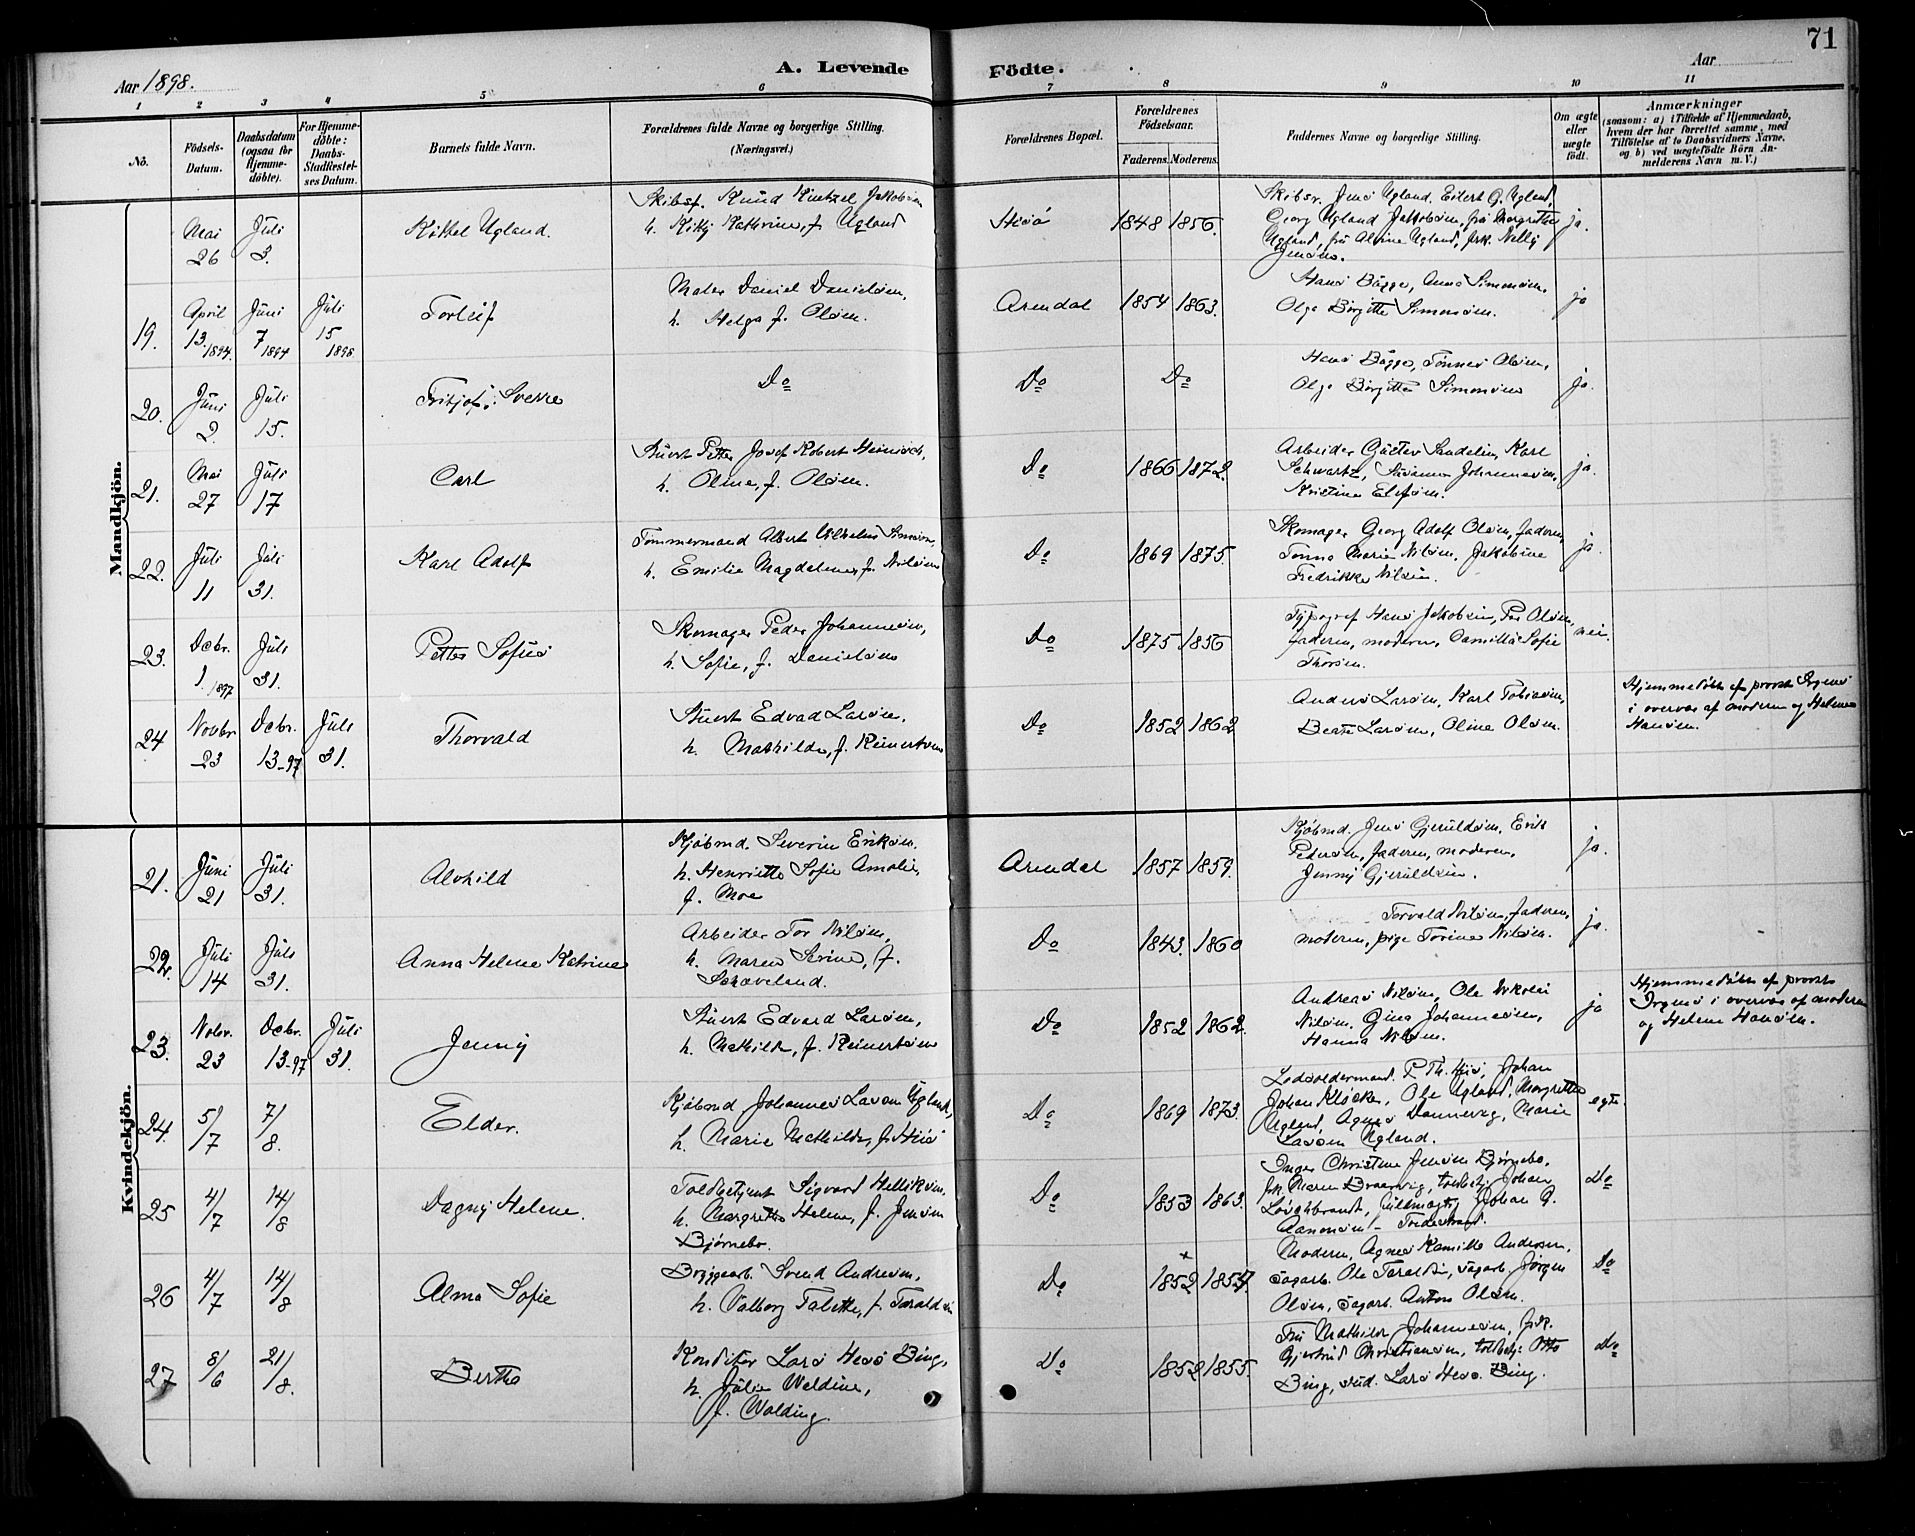 71
Aar 1898.
A. Levende Födte.
Aar
1 2 3 4 5 6 7 8 9 10 11
No.
Födsels-Datum.
Daabsdatum (ogsaa for Hjemme-döbte).
For Hjemme-döbte: Daabs-Stadfæstel-ses Datum.
Barnets fulde Navn.
Forældrenes fulde Navne og borgerlige Stilling.
(Næringsvei.)
Forældrenes Bopæl.
Forældrenes Födselsaar.
Faderens. Moderens.
Faddernes Navne og borgerlige Stilling.
Om ægte eller uægte födt.
Anmærkninger
(saasom: a) i Tilfælde af Hjemmedaab,
hvem der har forrettet samme, med
Tilföielse af to Daabsvidners Navne,
og b) ved uægtefödte Börn An-
melderens Navn m. V.)
Mandkjön.
Mai 26 Juli 3. Kittel Ugland.
Knud Jakobsen
h. Kathrine, f. Ugland
Hisö 1848 1856.
Skibsr. Jens Ugland, Eilert G. Ugland,
Georg Ugland Jakobsen, fru Margrethe
Ugland, fru Alvine Ugland, frk. Nelly
Jensen.
ja.
19. April 13. 1894. Juni 7 1894 Juli 15 1898 Torleif
Maler Daniel Danielsen,
h. Helga f. Olsen.
Arendal 1854 1863.
Hans Bugge, Simonsen,
Olga Birgitte Simonsen.
ja
20. Juni 2. Juli 15. Fritjof Sverre
Do Do Do
Hans Bugge, Tønnes Olsen,
Olga Birgitte Simonsen
ja.
21. Mai 27 Juli 17 Carl
Stuert Petter Josef Robert
h. Oline, f. Olsen.
Do 1866 1872.
Arbeider Gustav Sandelin, Karl
Schwartz, Susanne Johannesen,
Kristine
ja.
22. Juli 11 Juli 31. Karl Adolf
Tømmermand Albert Vilhelm
h. Emilie Magdalene, f. Nilsen
Do 1869 1875.
Skomager Georg Adolf Olsen, faderen,
Marie Nilsen, Jakobine
Fredrikke Nilsen.
ja.
23. Decbr. 1. 1897 Juli 31. Petter Sofus
Skomager Peder Johannesen,
h. Sofie, f. Danielsen
Do 1875 1856
Typograf Hans Jakobsen, Olsen,
faderen, moderen, Camilla Sofie
Thorsen.
nei.
24 Novbr. 23 Decbr. 13-97 Juli 31. Thorvald
Stuert Edvad Larsen,
h. Mathilde, f. Reinertsen
Do 1852 1862
Anders Larsen, Karl Tobiasen,
Larsen, Oline Olsen.
Hjemmedöbt af provst
i overvær af moderen og Helene
Hansen.
Kvindekjön.
21. Juni 21 Juli 31. Alvhild
Kjøbmd. Severin Eriksen.
h. Henriette Sofie Amalie,
f. Moe
Arendal 1857 1859.
Kjøbmd. Jens Gjeruldsen, Erik
Pedersen, faderen, moderen,
Jenny Gjeruldsen.
ja.
22. Juli 14 Juli 31. Anna Helene Katrine
Arbeider Tor Nilsen,
h. Maren Serine, f.
Do 1843. 1860
Torvald Nilsen, faderen,
moderen, pige Torine Nilsen.
ja.
23. Nobr. 23 Dcbr. 13-97 Juli 31. Jenny
Stuert Edvard Larsen,
h. Mathilde, f. Reinertsen
Do 1852 1862.
Andreas Nilsen, Ole Nikolai
Nilsen, Gina Johannesen,
Hanna Nilsen.
ja
Hjemmedöbt af provst
i overvær af moderen
og Helene Hansen.
24. 5/7 7/8. Elder.
Kjøbmd Johannes Larsen Ugland,
h. Marie Mathilde, f. Hisö
Do 1869 1873.
Lodsoldermand P. Th. Hisö, Johan
Johan Klöcker, Ole Ugland, Margrethe
Ugland, Agnes Dannevig, Marie
Larsen Ugland.
egte.
25 4/7 14/8 Dagny Helene.
Toldbetjent Sigvard
h. Margrethe Helene, f. Jensen
Bjørnebo.
Do 1853 1863.
Inger Christine Jensen Bjørnebo,
frk. Maren toldbetj. Johan
Johan G.
Aanonsen
Do
26 4/7 14/8 Alma Sofie
Bryggearb. Svend Andersen,
h. Valborg Talette, f. Taraldsen
Do 1852 1857.
Moderen, Agnes Kamilla Andersen,
Sagarb. Ole Sagarb. Jørgen
Olsen, Sagarb. Anton Olsen.
Do
27 8/6 21/8. Berthe
Konditor Lars Hess Bing,
h. Julie Waldine,
f. Walding.
Do 1852 1855.
Fru Mathilde Johannesen, frk.
Gjertrud Christiansen, toldbetj. Otto
Bing, stud. Lars Hess Bing.
Do